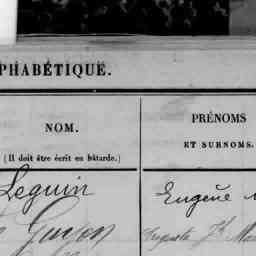 PHABÉTIQUE.
NOM.
(Il doit être écrit en bâtarde.)
PRÉNOMS
ET SURNOMS.
Leguin
Eugène
Guyon
Auguste